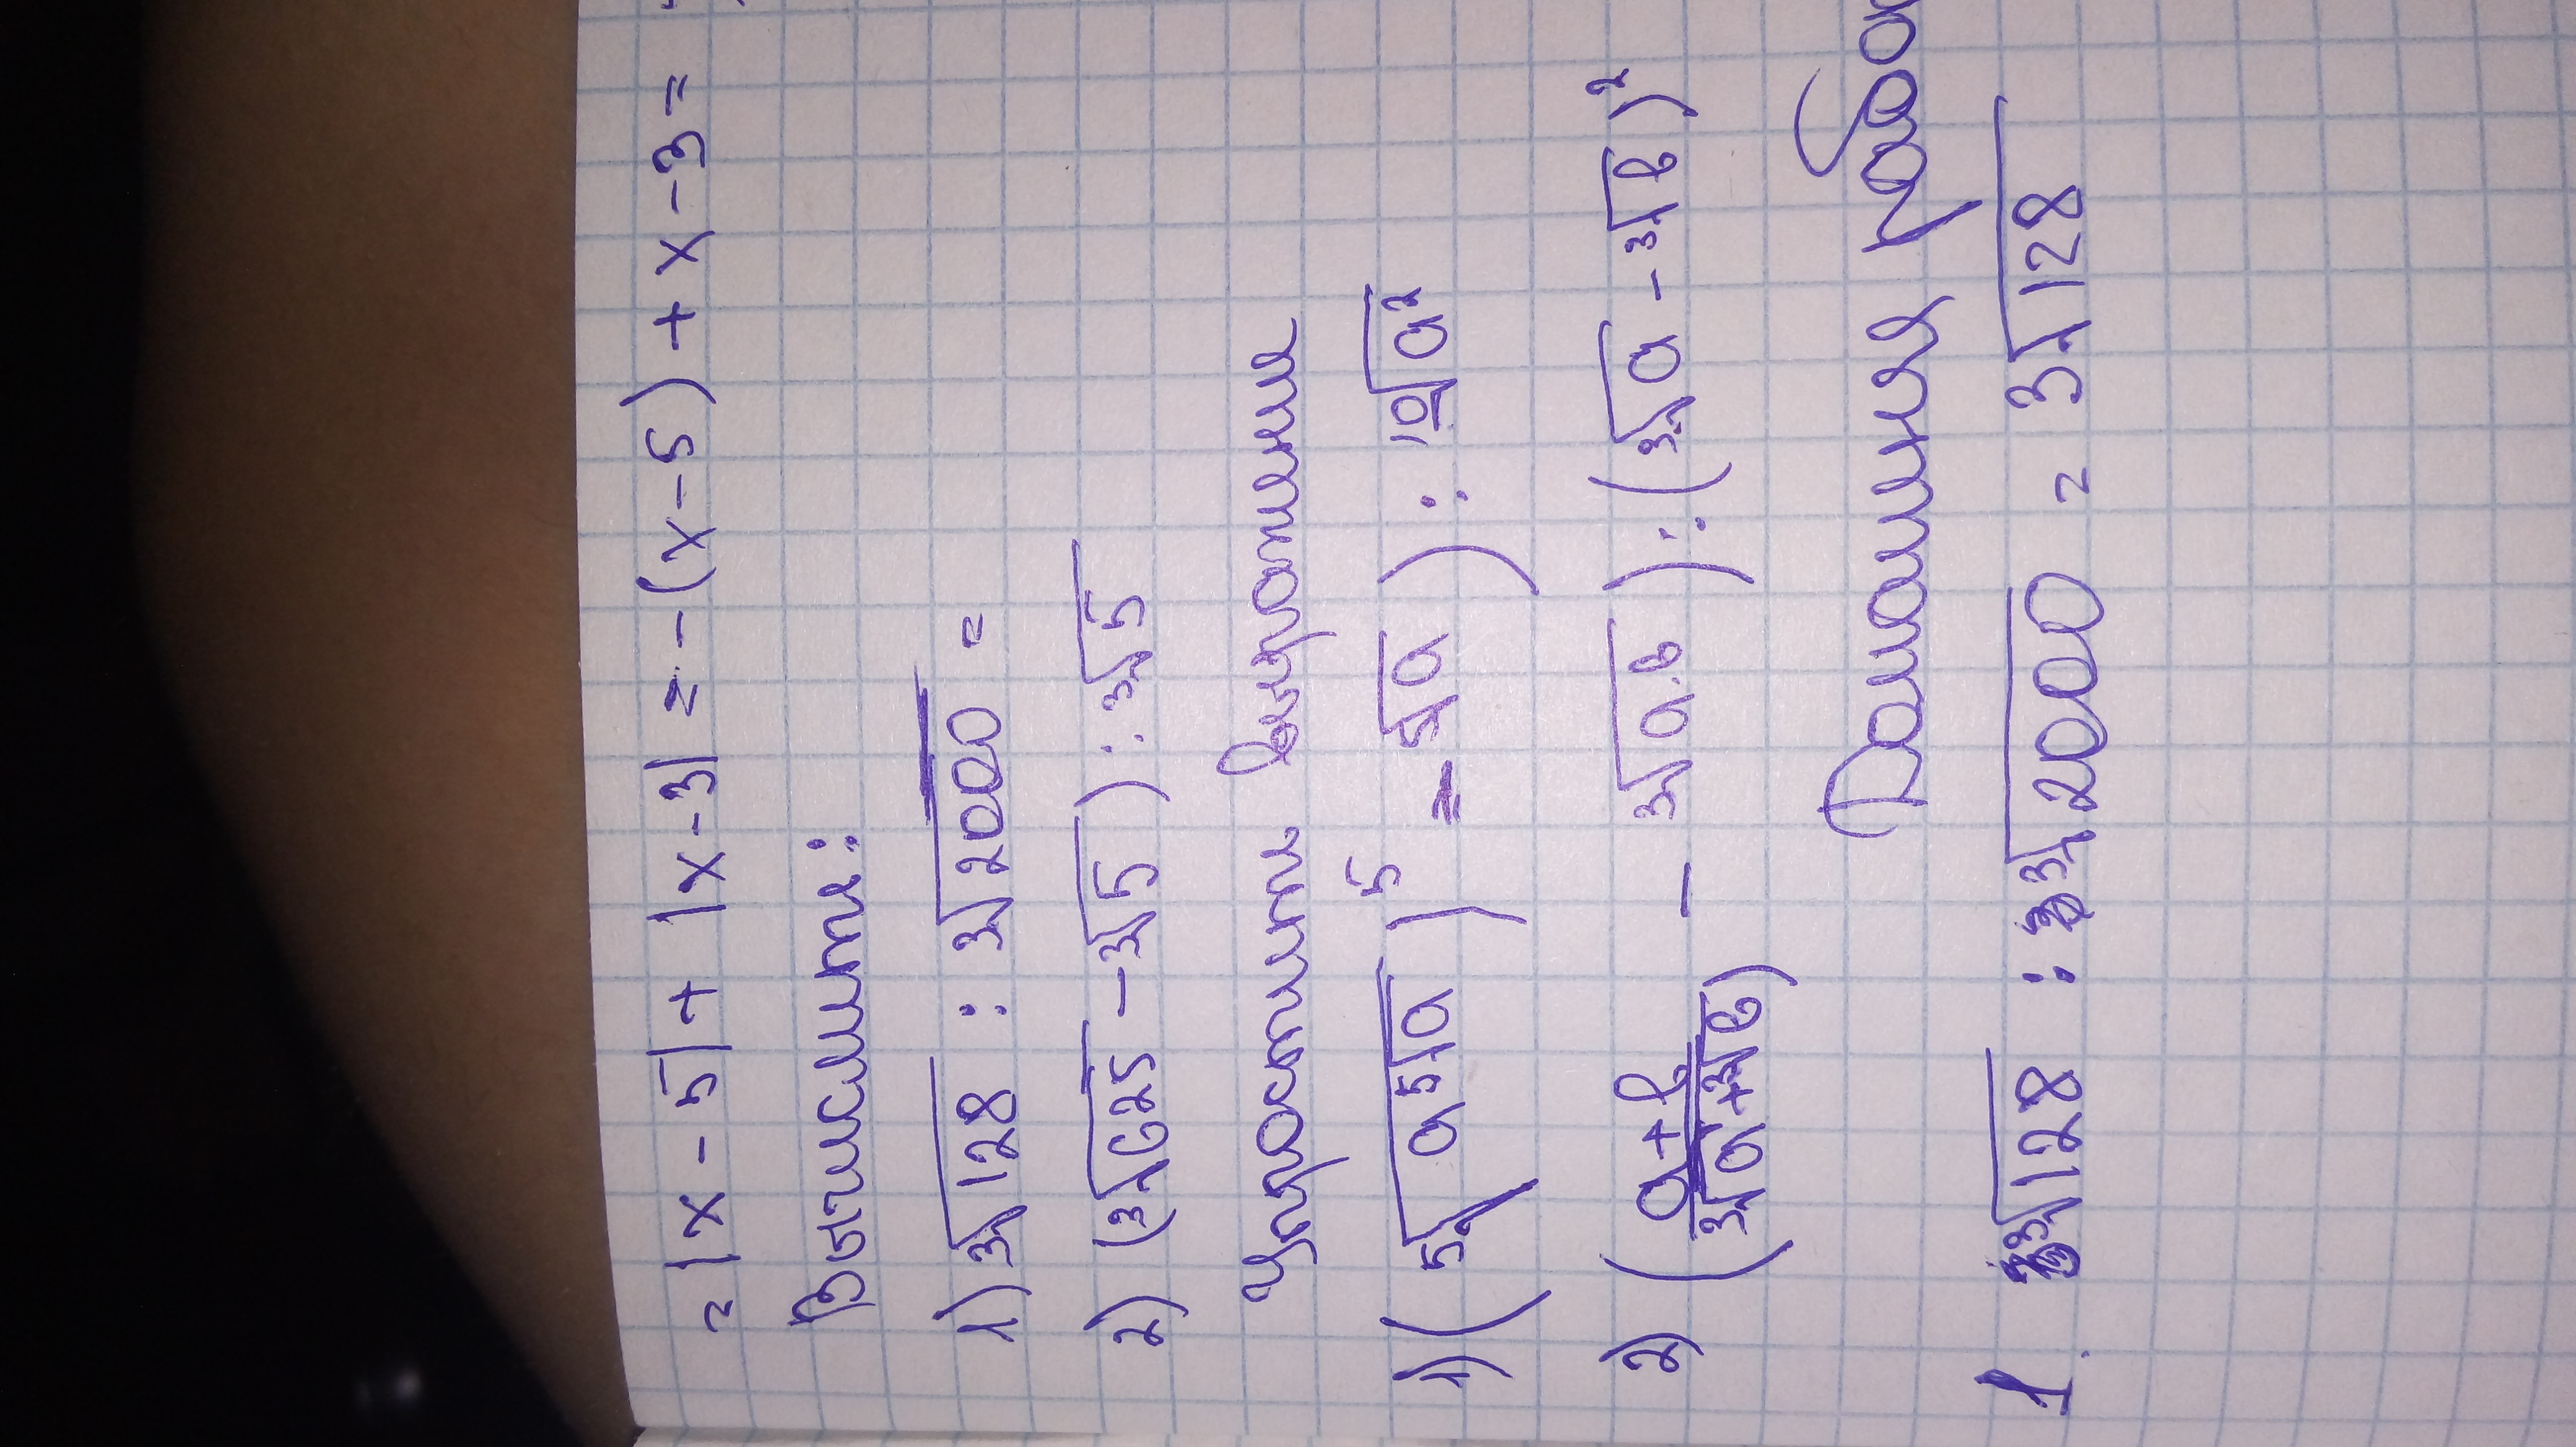 = |x - 5| + |x - 3| = - (x - 5) + x - 3 =
Вычислить:
1) ∛128 : ∛2000 =
2) (∛625 - ∛5) : ∛5
Упростить выражение
1) (⁵√(a ⁵√a))⁵ - ⁵√a) : ¹⁰√a²
2) ((a+b)/(∛a+∛b) - ∛ab) : (∛a - ∛b)²
Домашняя
1. ∛128 : ∛2000 = 3√128